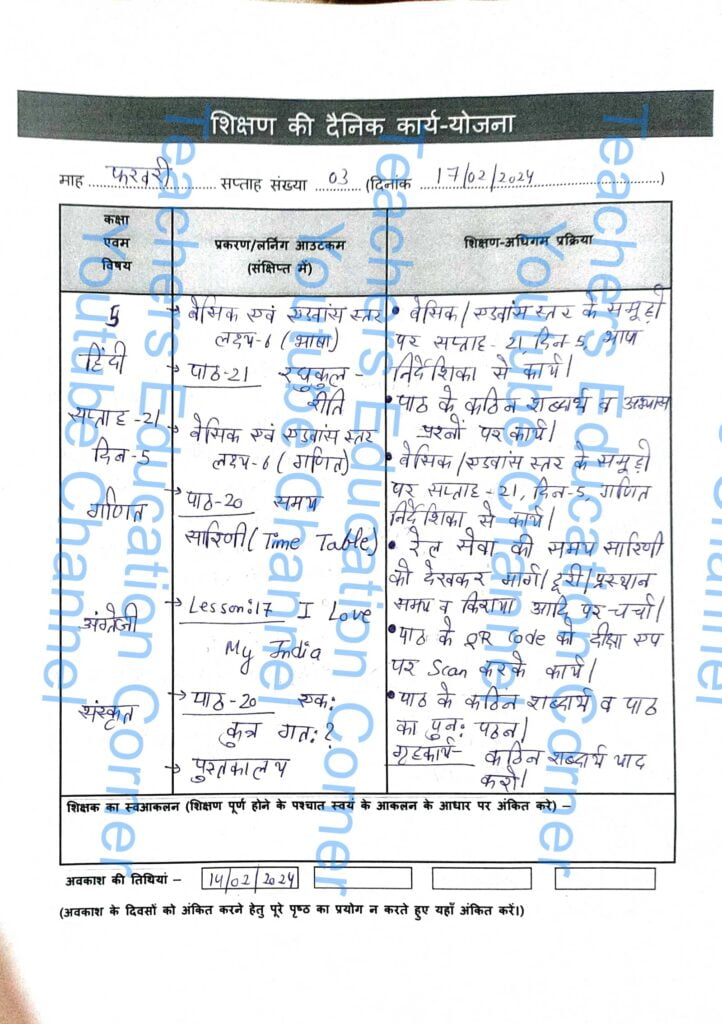 शिक्षण की दैनिक कार्य-योजना
माह फरवरी सप्ताह संख्या 03 (दिनांक 17/02/2024)
कक्षा
एवम
विषय
प्रकरण/लर्निंग आउटकम
(संक्षिप्त में)
शिक्षण-अधिगम प्रक्रिया
5
हिंदी
सप्ताह-21
दिन-5
गणित
अंग्रेजी
संस्कृत
→ बेसिक एवं एडवांस स्तर
लक्ष्य-6 (भाषा)
→ पाठ-21 रघुकुल-
रीति
→ बेसिक एवं एडवांस स्तर
लक्ष्य-6 (गणित)
→ पाठ-20 समय
सारिणी (Time Table)
→ Lesson:17 I Love
My India
→ पाठ-20 एक:
कुत्र गत:?
→ पुस्तकालय
• बेसिक/एडवांस स्तर के समूहों
पर सप्ताह-21, दिन-5, भाषा
निर्देशिका से कार्य।
• पाठ के कठिन शब्दार्थ व अभ्यास
प्रश्नों पर कार्य।
• बेसिक/एडवांस स्तर के समूहों
पर सप्ताह-21, दिन-5, गणित
निर्देशिका से कार्य।
• रेल सेवा की समय सारिणी
को देखकर मार्ग/दूरी/प्रस्थान
समय व किराया आदि पर चर्चा।
• पाठ के QR Code को दीक्षा एप
पर Scan करके कार्य।
• पाठ के कठिन शब्दार्थ व पाठ
का पुन: पठन।
गृहकार्य- कठिन शब्दार्थ याद
करो।
शिक्षक का स्वआकलन (शिक्षण पूर्ण होने के पश्चात स्वयं के आकलन के आधार पर अंकित करे) –
अवकाश की तिथियां – 14/02/2024
(अवकाश के दिवसों को अंकित करने हेतु पूरे पृष्ठ का प्रयोग न करते हुए यहाँ अंकित करें।)
Teachers Education Corner
Youtube Channel
Teachers Education Corner
Youtube Channel
Teachers Education Corner
Youtube Channel